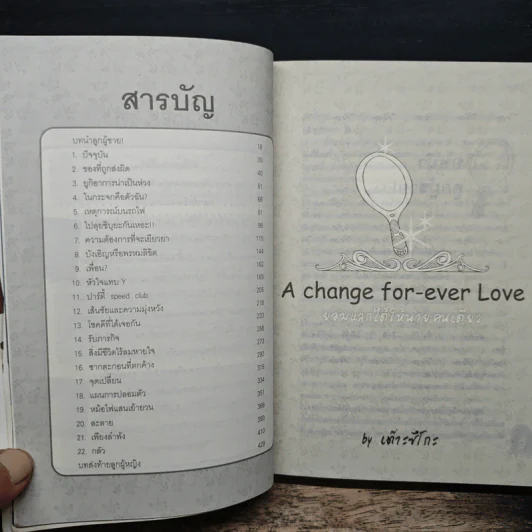 สารบัญ
บทนำลูกผู้ชาย! 18
1. ปัจจุบัน
2. ของที่ถูกส่งผิด 40
3. ยูกิอาการน่าเป็นห่วง
4. ในกระจกคือตัวฉัน?
5. เหตุการณ์บนรถไฟ
6. ไปลุยชิบุยะกันเหอะ!!
7. ความต้องการที่จะเยียวยา 115
8. บังเอิญหรือพรหมลิขิต 144
9. เพื่อน?
10. หัวใจแทบ Y
11. ปาร์ตี้ speed club 205
12. เส้นชัยและความมุ่งหวัง 218
13. โชคดีที่ได้เจอกัน
14. รับภารกิจ 272
15. สิ่งมีชีวิตไร้ลมหายใจ 290
16. ซากตะกอนที่ตกค้าง 316
17. จุดเปลี่ยน 334
18. แผนการปลอมตัว 351
19. หม้อไฟแสนเย้ายวน 369
20. ละลาย
21. เพียงลำพัง 410
22. กลัว 429
บทส่งท้ายลูกผู้หญิง
A change for-ever Love
ยอมแลกได้ให้นายคนเดียว
by เต๊าะซีโกะ